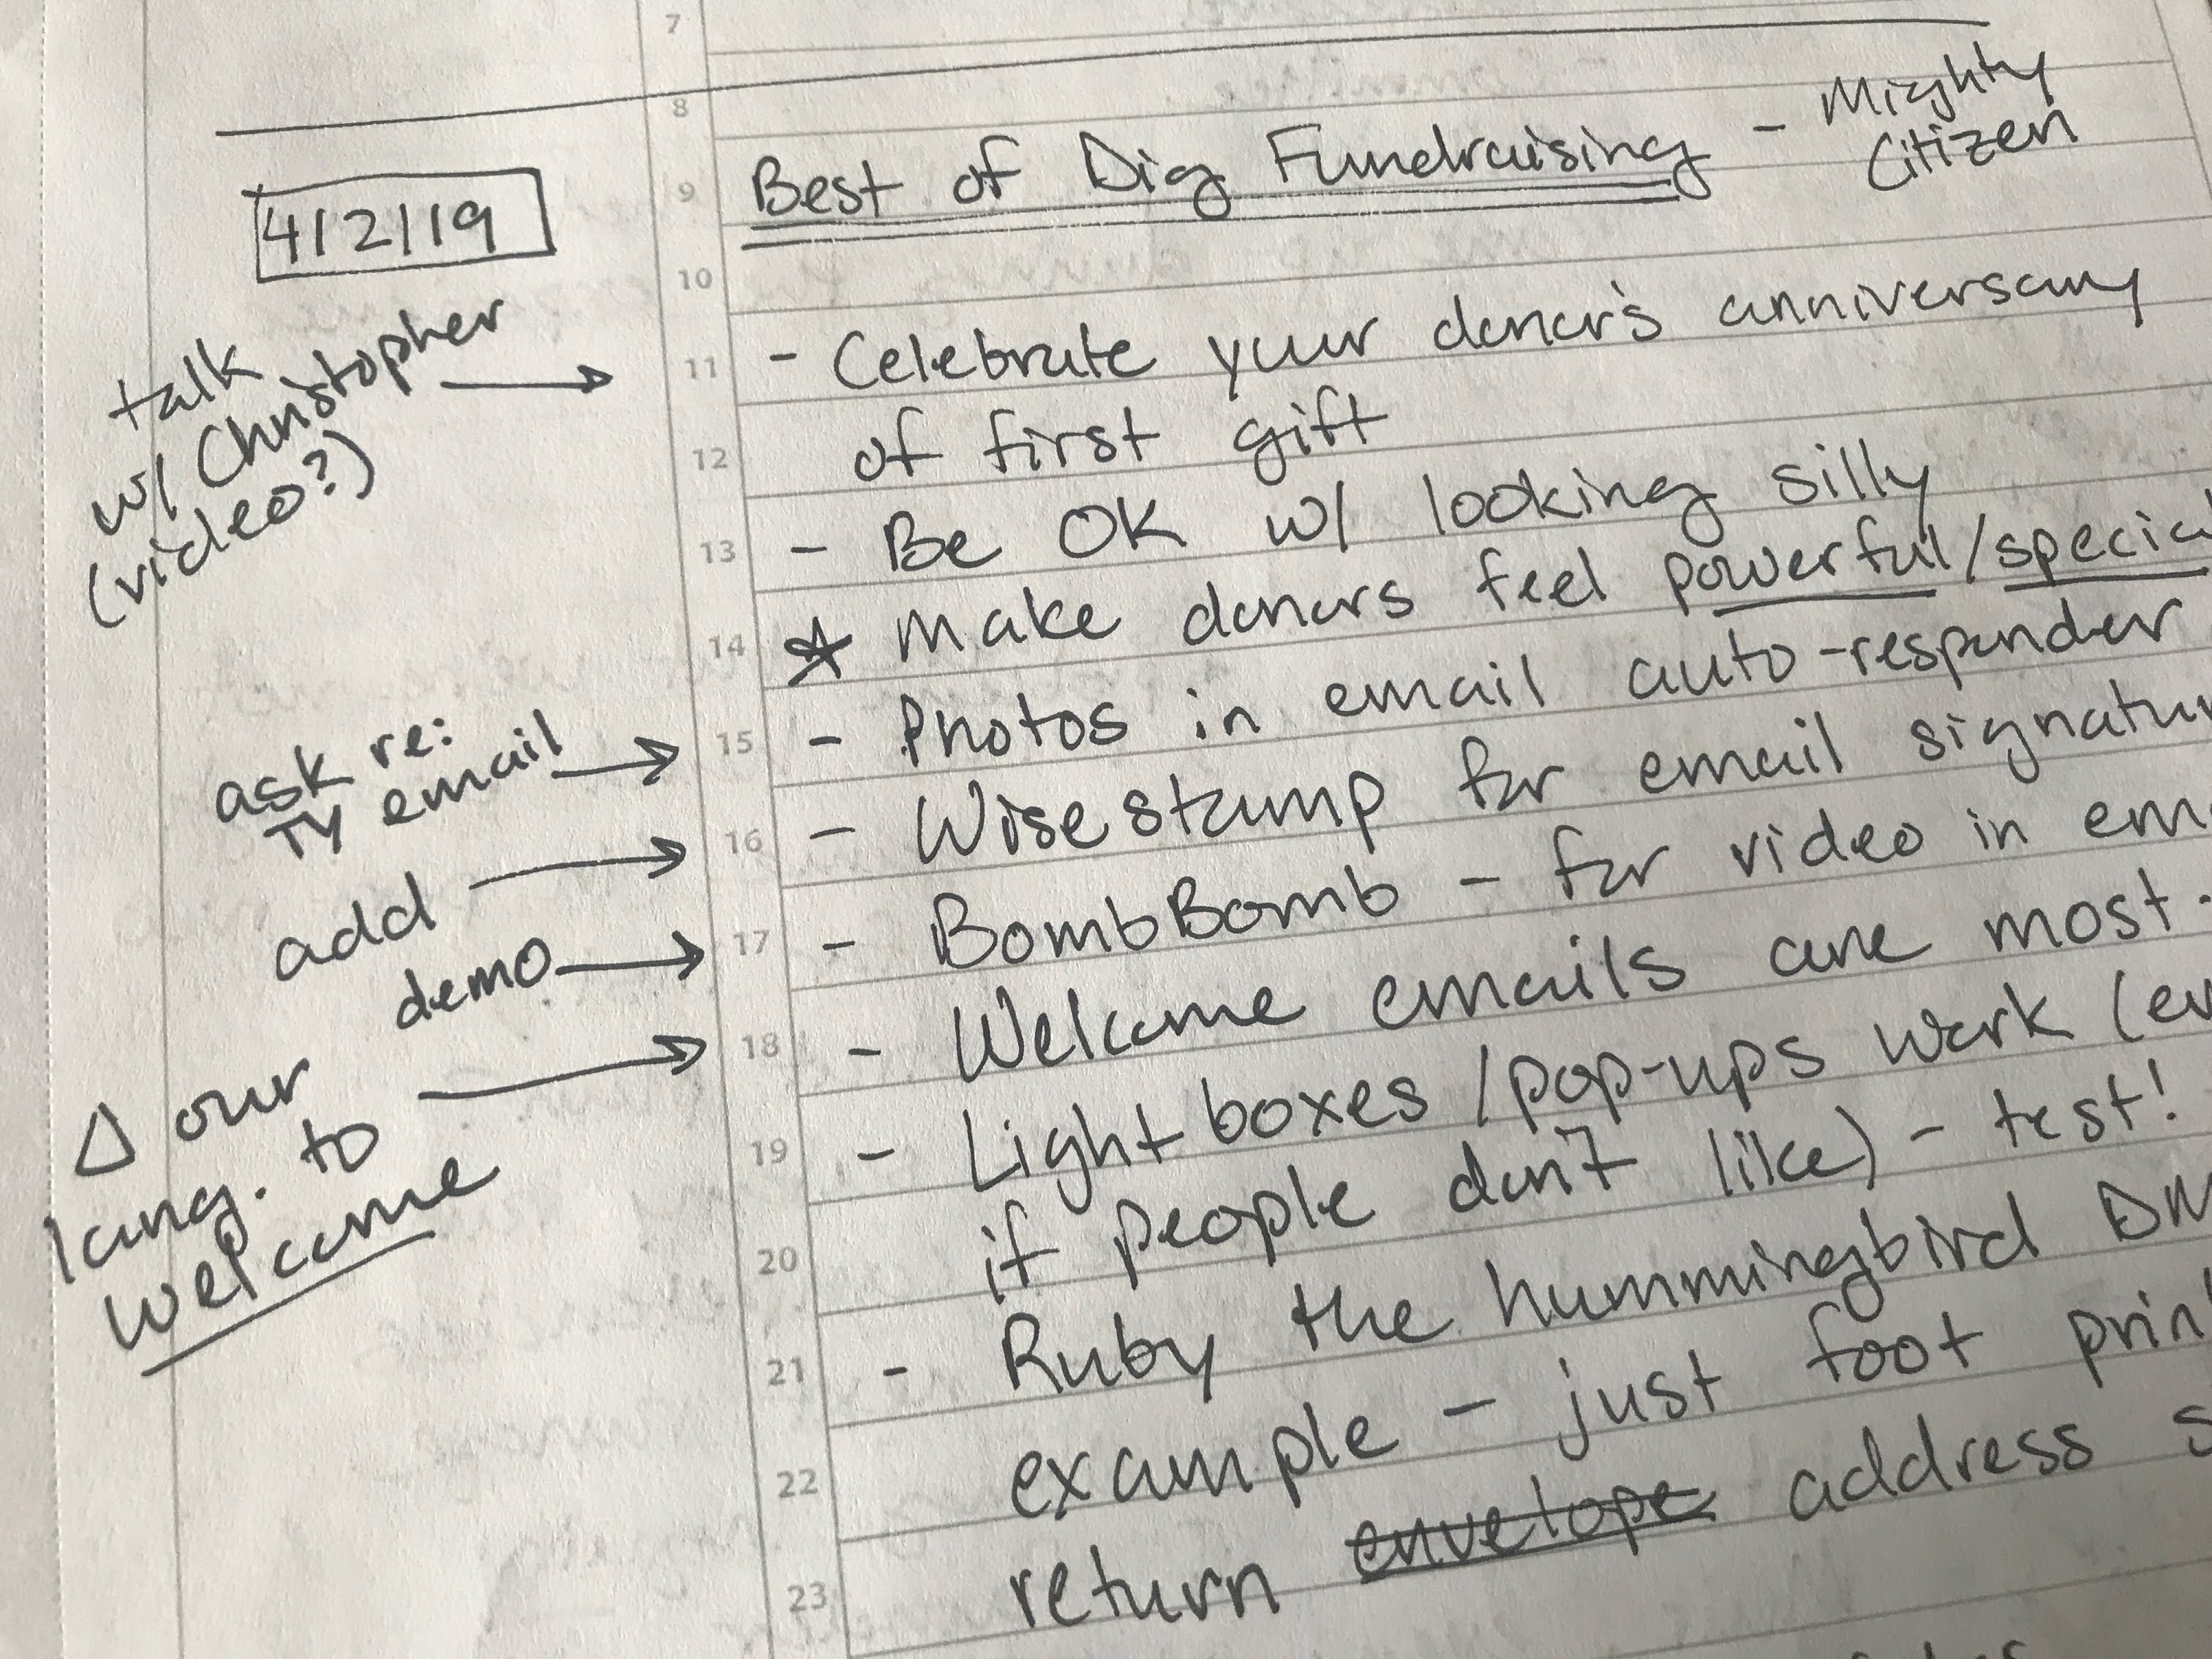 7
8
Best of Dig Fundraising - Mighty
Citizen
9
4/2/19
10
- Celebrate your donor's anniversary
11
of first gift
12
talk
w/ Christopher →
(video?)
- Be OK w/ looking silly
13
☆ Make donors feel powerful/special
14
- Photos in email auto-responder
15
ask re:
TY email →
- Wisestamp for email signatur
16
add →
- BombBomb - for video in em
17
demo →
- Welcome emails are most
18
Δ our →
lang. to
welcome
- Lightboxes/pop-ups work (ev
19
if people don't like) - test!
20
- Ruby the hummingbird DM
21
example - just foot prin
22
return envelope address s
23